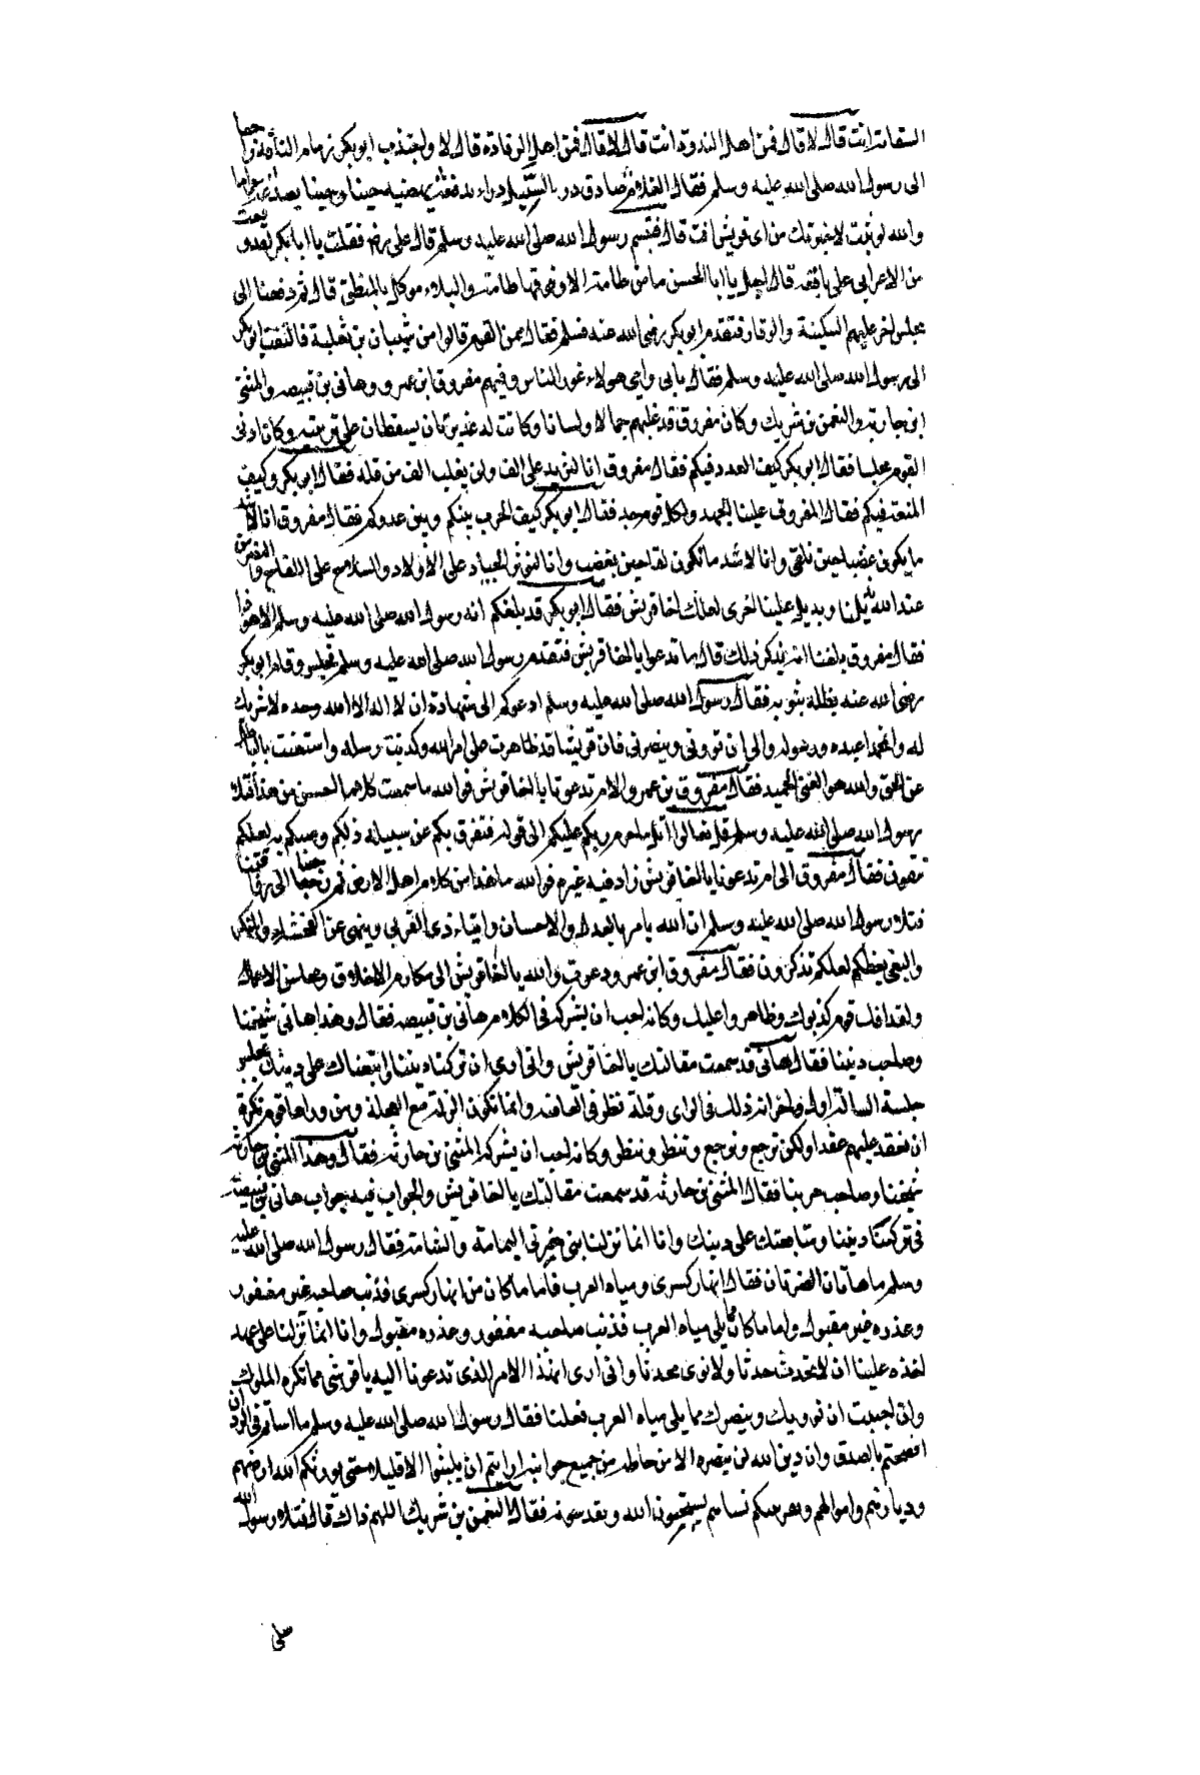 السقاية انت قال لا قال فمن اهل الندوة انت قال لا قال فمن اهل الرفادة قال لا واجتذب ابو بكر زمام الناقة راجعا
الى رسول الله صلى الله عليه وسلم فقال الغلام صادق درء السيل درء يدفعه يهضبه حينا وحينا يصدعه اما
والله لو ثبت لاخبرتك من اى قريش انت قال فتبسم رسول الله صلى الله عليه وسلم قال على رضه فقلت يا ابا بكر لقد وقعت
من الاعرابى على باقعة قال اجل يا ابا الحسن ما من طامة الا وفوقها طامة والبلاء موكل بالمنطق قال ثم دفعنا الى
مجلس اخر عليهم السكينة والوقار فتقدم ابو بكر رضى الله عنه فسلم فقال ممن القوم قالوا من شيبان بن ثعلبة فالتفت ابو بكر
الى رسول الله صلى الله عليه وسلم فقال بابى وامى هولاء غرر الناس وفيهم مفروق ابن عمرو وهانى بن قبيصه والمثنى
ابن حارثة والنعمن بن شريك وكان مفروق قد غلبهم جمالا ولسانا وكانت له غديرتان يسقطان على تربيته وكان ادنى
القوم مجلسا فقال ابو بكر كيف العدد فيكم فقال مفروق انا لنزيد على الف ولن يغلب الف من قلة فقال ابو بكر وكيف
المنعة فيكم فقال المفروق علينا الجهد ولكل قوم جد فقال ابو بكر كيف الحرب بينكم وبين عدوكم فقال مفروق انا لاشد
ما يكون غضبا حين نلقى وانا لاشد ما نكون لقا حين نغضب وانا لنوثر الجياد على الاولاد والسلاح على اللقاح والنصر من
عند الله يديلنا ويديل علينا اخرى لعلك اخا قريش فقال ابو بكر قد بلغكم انه رسول الله صلى الله عليه وسلم الا هو ذا
فقال مفروق بلغنا انه يذكر ذلك قال ما تدعوا يا اخا قريش فتقدم رسول الله صلى الله عليه وسلم فجلس وقام ابو بكر
رضى الله عنه يظله بثوبه فقال رسول الله صلى الله عليه وسلم ادعوكم الى شهادة ان لا اله الا الله وحده لا شريك
له وان محمدا عبده ورسوله والى ان تووونى وينصرنى فان قريشا قد ظاهرت على امر الله وكذبت رسله واستغنت بالباطل
عن الحق والله هو الغنى الحميد فقال مفروق بن عمرو والام تدعونا يا اخا قريش فوالله ما سمعت كلاما احسن من هذا فتلا
رسول الله صلى الله عليه وسلم قل تعالوا اتل ما حرم ربكم عليكم الى قوله فتفرق بكم عن سبيله ذلكم وصيكم به لعلكم
تتقون فقال مفروق الى ام تدعونا يا اخا قريش زاد فيه غيره فوالله ما هذا من كلام اهل الارض ثم رجعنا الى
فتلا رسول الله صلى الله عليه وسلم ان الله يامر بالعدل والاحسان وايتاء ذى القربى وينهى عن الفحشاء والمنكر
والبغى يعظكم لعلكم تذكرون فقال مفروق ابن عمرو دعوت والله يا اخا قريش الى مكارم الاخلاق ومحاسن الاعمال
ولقد افك قوم كذبوك وظاهروا عليك وكانه احب ان يشركه فى الكلام هانى بن قبيصه فقال وهذا هانى شيخنا
وصاحب ديننا فقال هانى قد سمعت مقالتك يا اخا قريش وانى ارى ان تركنا ديننا واتبعناك على دينك لمجلس
جلسته الينا اول ولا اخر انه ذلل فى الراى وقلة نظر فى العاقبه وانما تكون الزلة مع العجلة ومن ورائنا قوم نكره
ان نعقد عليهم عقدا ولكن نرجع وترجع وتنظر وننظر وكانه احب ان يشركه المثنى بن حارثه فقال وهذا المثنى بن حارثه
شيخنا وصاحب حربنا فقال المثنى بن حارثه قد سمعت مقالتك يا اخا قريش والجواب فيه جواب هانى بن قبيصة
فى تركنا ديننا ومتابعتك على دينك وانا انما نزلنا بين ضرتى اليمامة والسمامة فقال رسول الله صلى الله عليه
وسلم ما هاتان الضرتان فقال انهار كسرى ومياه العرب فاما ما كان من انهار كسرى فذنب صاحبه غير مغفور
وعذره غير مقبول واما ما كان مما يلى مياه العرب فذنب صاحبه مغفور وعذره مقبول وانا انما نزلنا على عهد
اخذه علينا ان لا نحدث حدثا ولا نوى محدثا وانى ارى ان هذا الامر الذى تدعونا اليه يا قرشى مما تكره الملوك
وان احببت ان نوويك وينصرك مما يلى مياه العرب فعلنا فقال رسول الله صلى الله عليه وسلم ما اساتم فى الرد ان
افصحتم بالصدق وان دين الله لن ينصره الا من حاطه من جميع جوانبه ارايتم ان يلبثوا الا قليلا حتى يورثكم الله ارضهم
وديارهم واموالهم ويعرسكم نساهم يسبحون الله ويقدسونه فقال النعمن بن شريك اللهم ذاك قال فتلا رسول الله
صلى